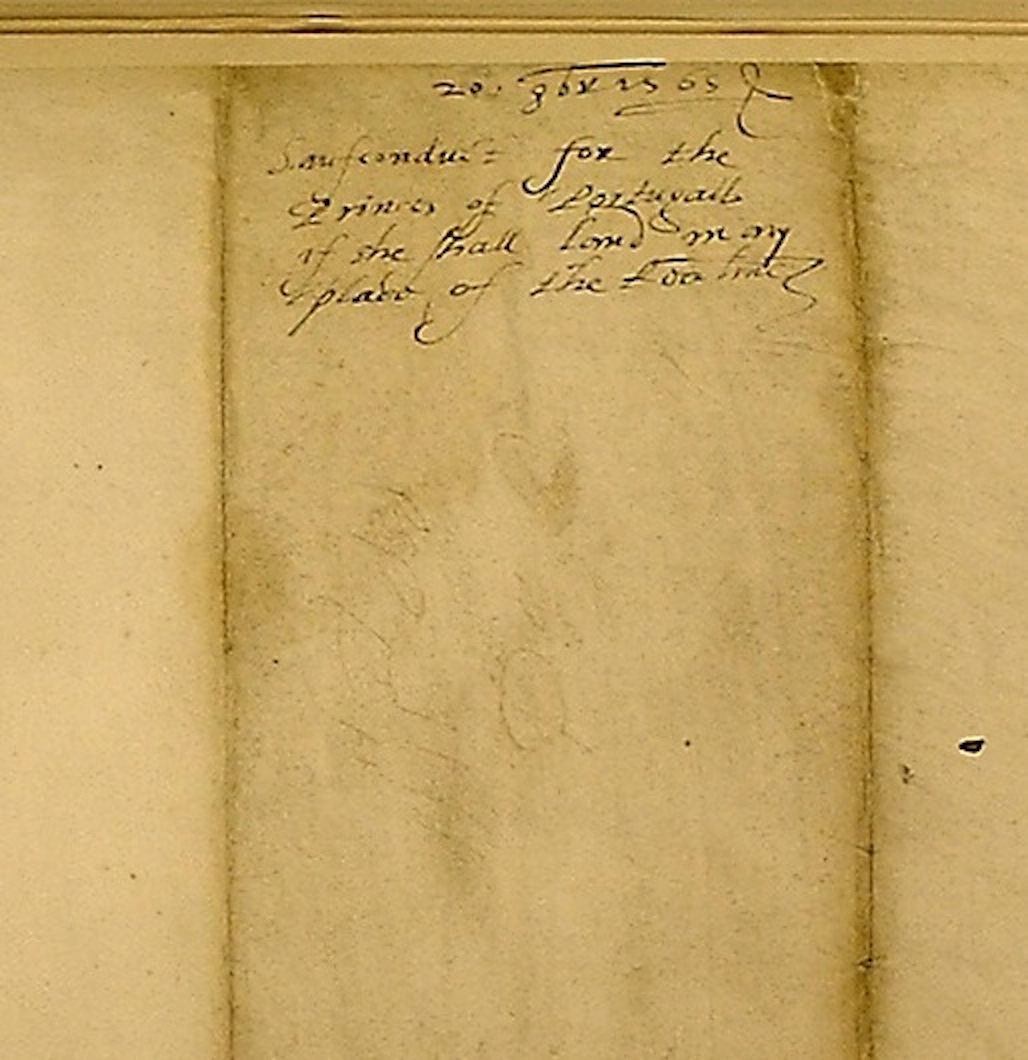 20. 9bris 1565
Saufconduit for the
Princes of Portugall
if she shall land in any
place of the